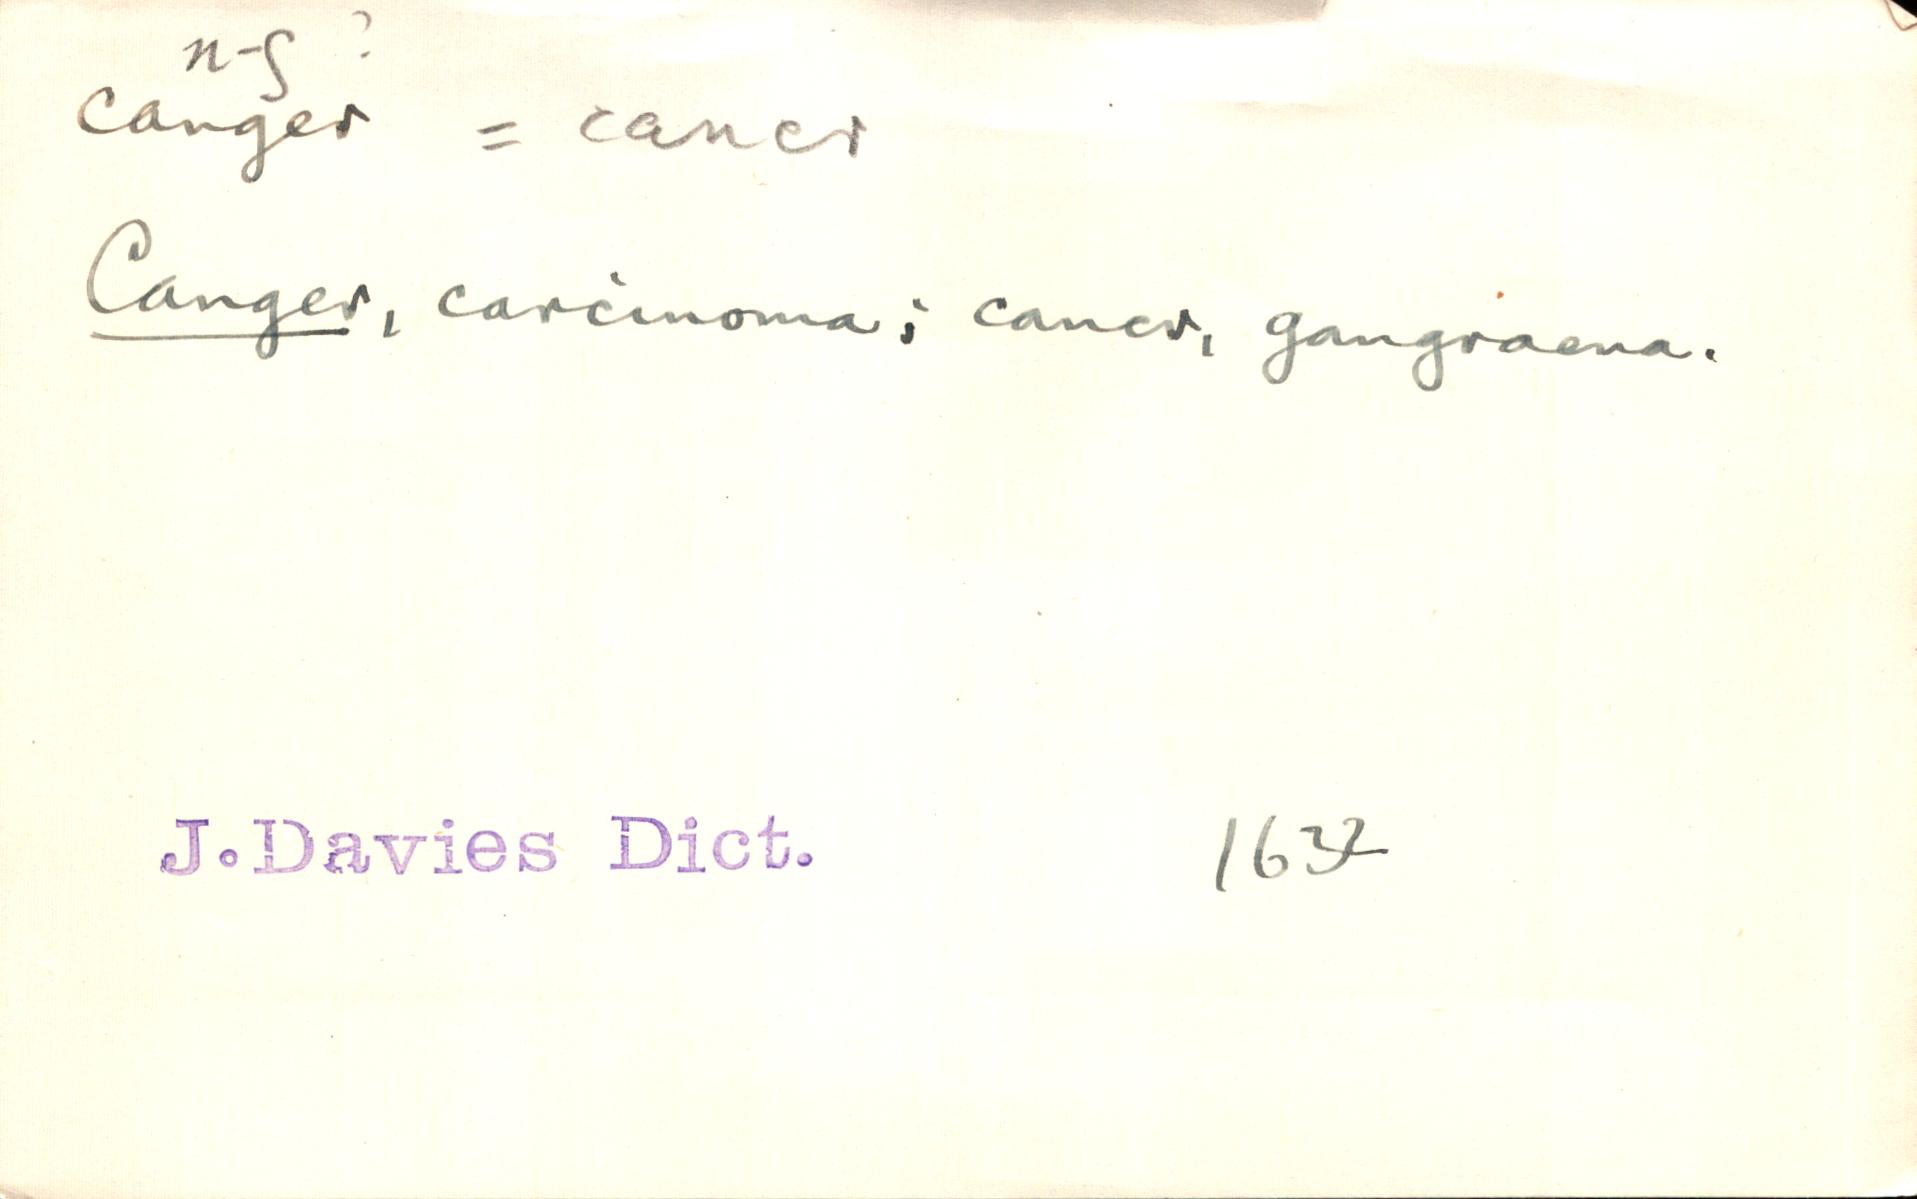 n-g ?
canger = cancr
Canger, carcinoma; cancr, gangraena.
J.Davies Dict. 1632